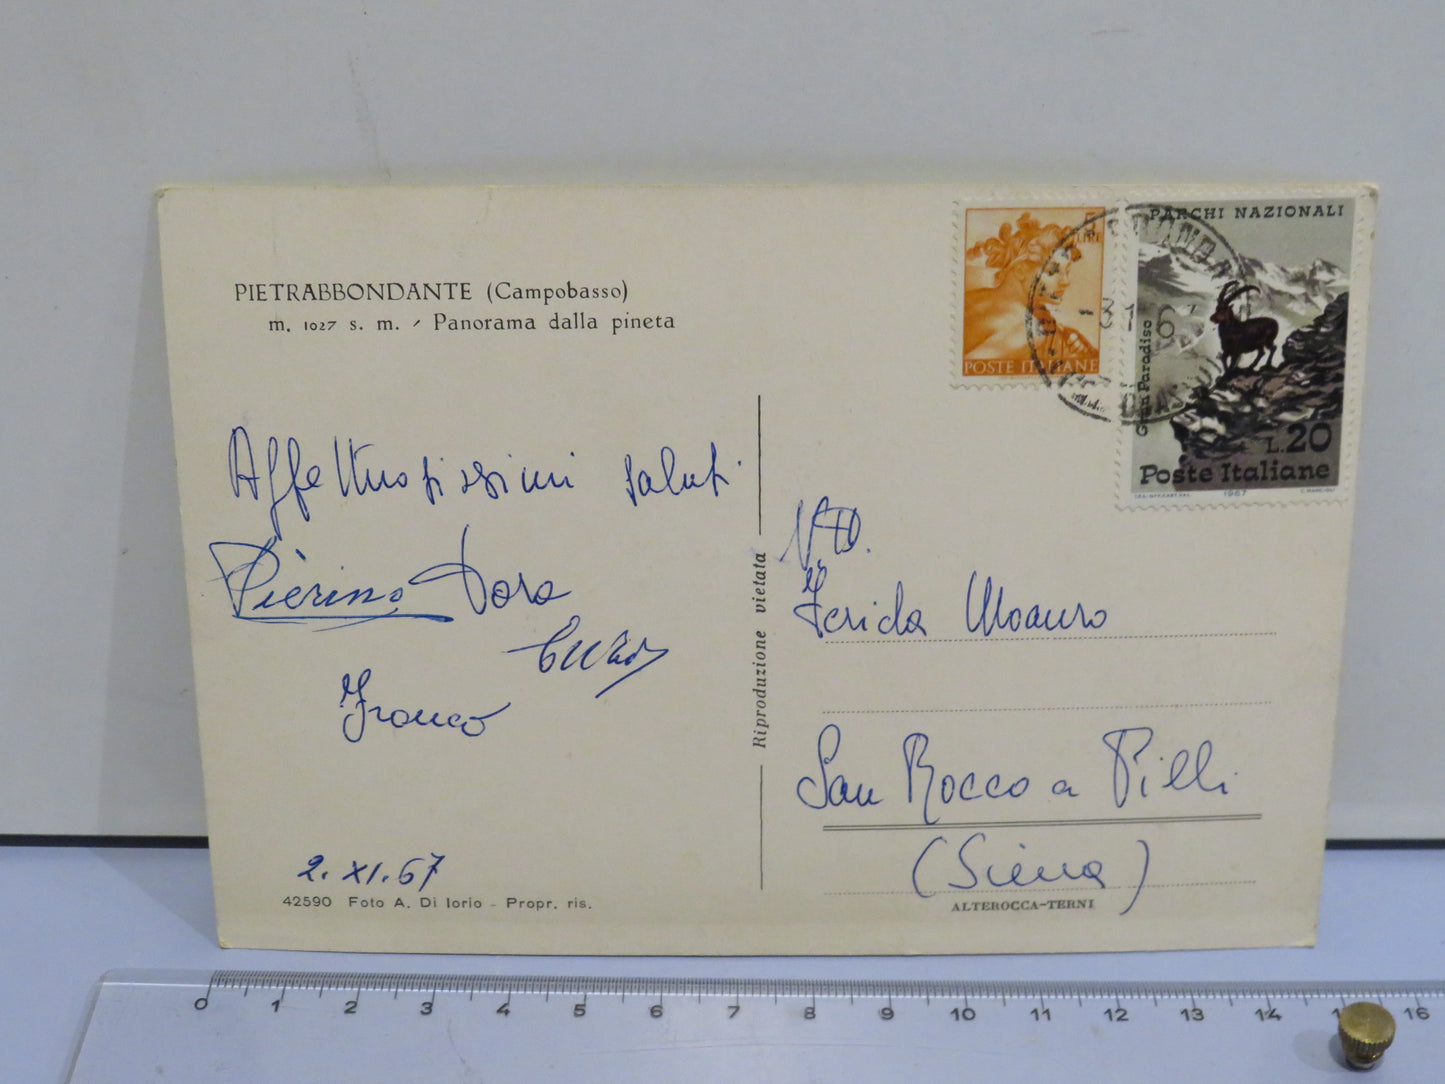 PIETRABBONDANTE (Campobasso)
m. 1027 s. m. - Panorama dalla pineta
Affettuosissimi saluti
Pierino Dora
Franco
2. XI. 67
42590 Foto A. Di Iorio - Propr. ris.
Riproduzione vietata
5
LIRE
POSTE ITALIANE
PARCHI NAZIONALI
Gran Paradiso
L.20
Poste Italiane
1967
Ferida Moauro
San Rocco a Pilli
(Siena)
ALTEROCCA-TERNI
0 1 2 3 4 5 6 7 8 9 10 11 12 13 14 15 16